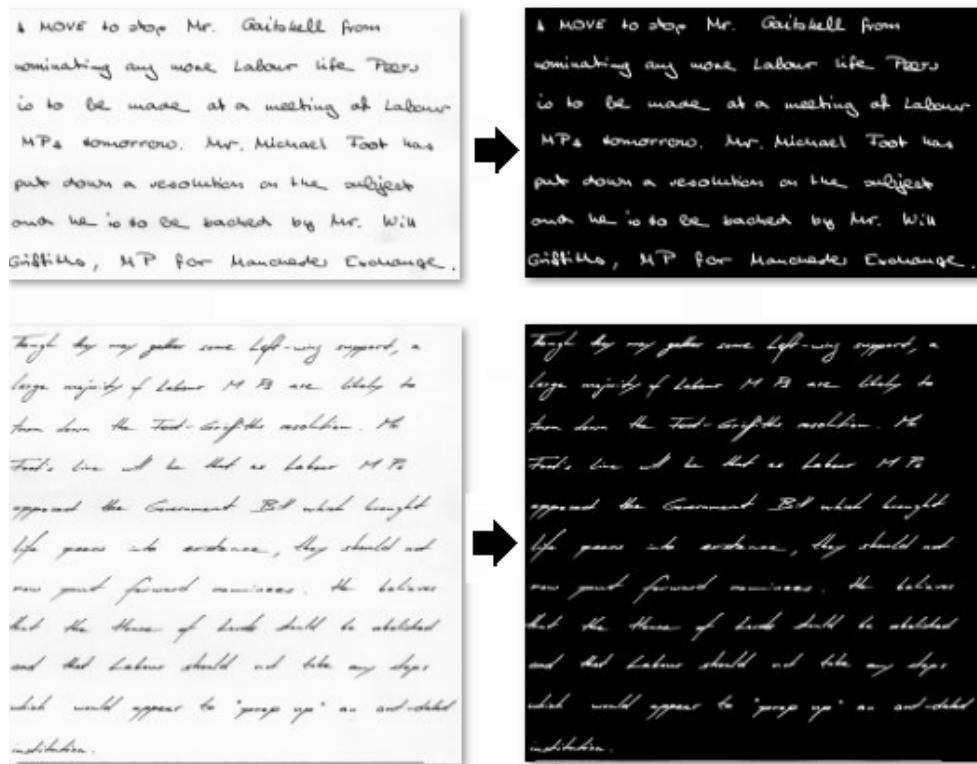 A MOVE to stop Mr. Gaitskell from
nominating any more Labour life Peers
is to be made at a meeting of Labour
MPs tomorrow. Mr. Michael Foot has
put down a resolution on the subject
and he is to be backed by Mr. Will
Griffiths, MP for Manchester Exchange.
A MOVE to stop Mr. Gaitskell from
nominating any more Labour life Peers
is to be made at a meeting of Labour
MPs tomorrow. Mr. Michael Foot has
put down a resolution on the subject
and he is to be backed by Mr. Will
Griffiths, MP for Manchester Exchange.
Though they may gather some Left-wing support, a
large majority of Labour M Ps are likely to
turn down the Foot-Griffiths resolution. Mr
Foot's line will be that as Labour M Ps
opposed the Government Bill which brought
life peers into existence, they should not
now put forward nominees. He believes
that the House of Lords should be abolished
and that Labour should not take any steps
which would appear to "prop up" an out-dated
institution.
Though they may gather some Left-wing support, a
large majority of Labour M Ps are likely to
turn down the Foot-Griffiths resolution. Mr
Foot's line will be that as Labour M Ps
opposed the Government Bill which brought
life peers into existence, they should not
now put forward nominees. He believes
that the House of Lords should be abolished
and that Labour should not take any steps
which would appear to "prop up" an out-dated
institution.